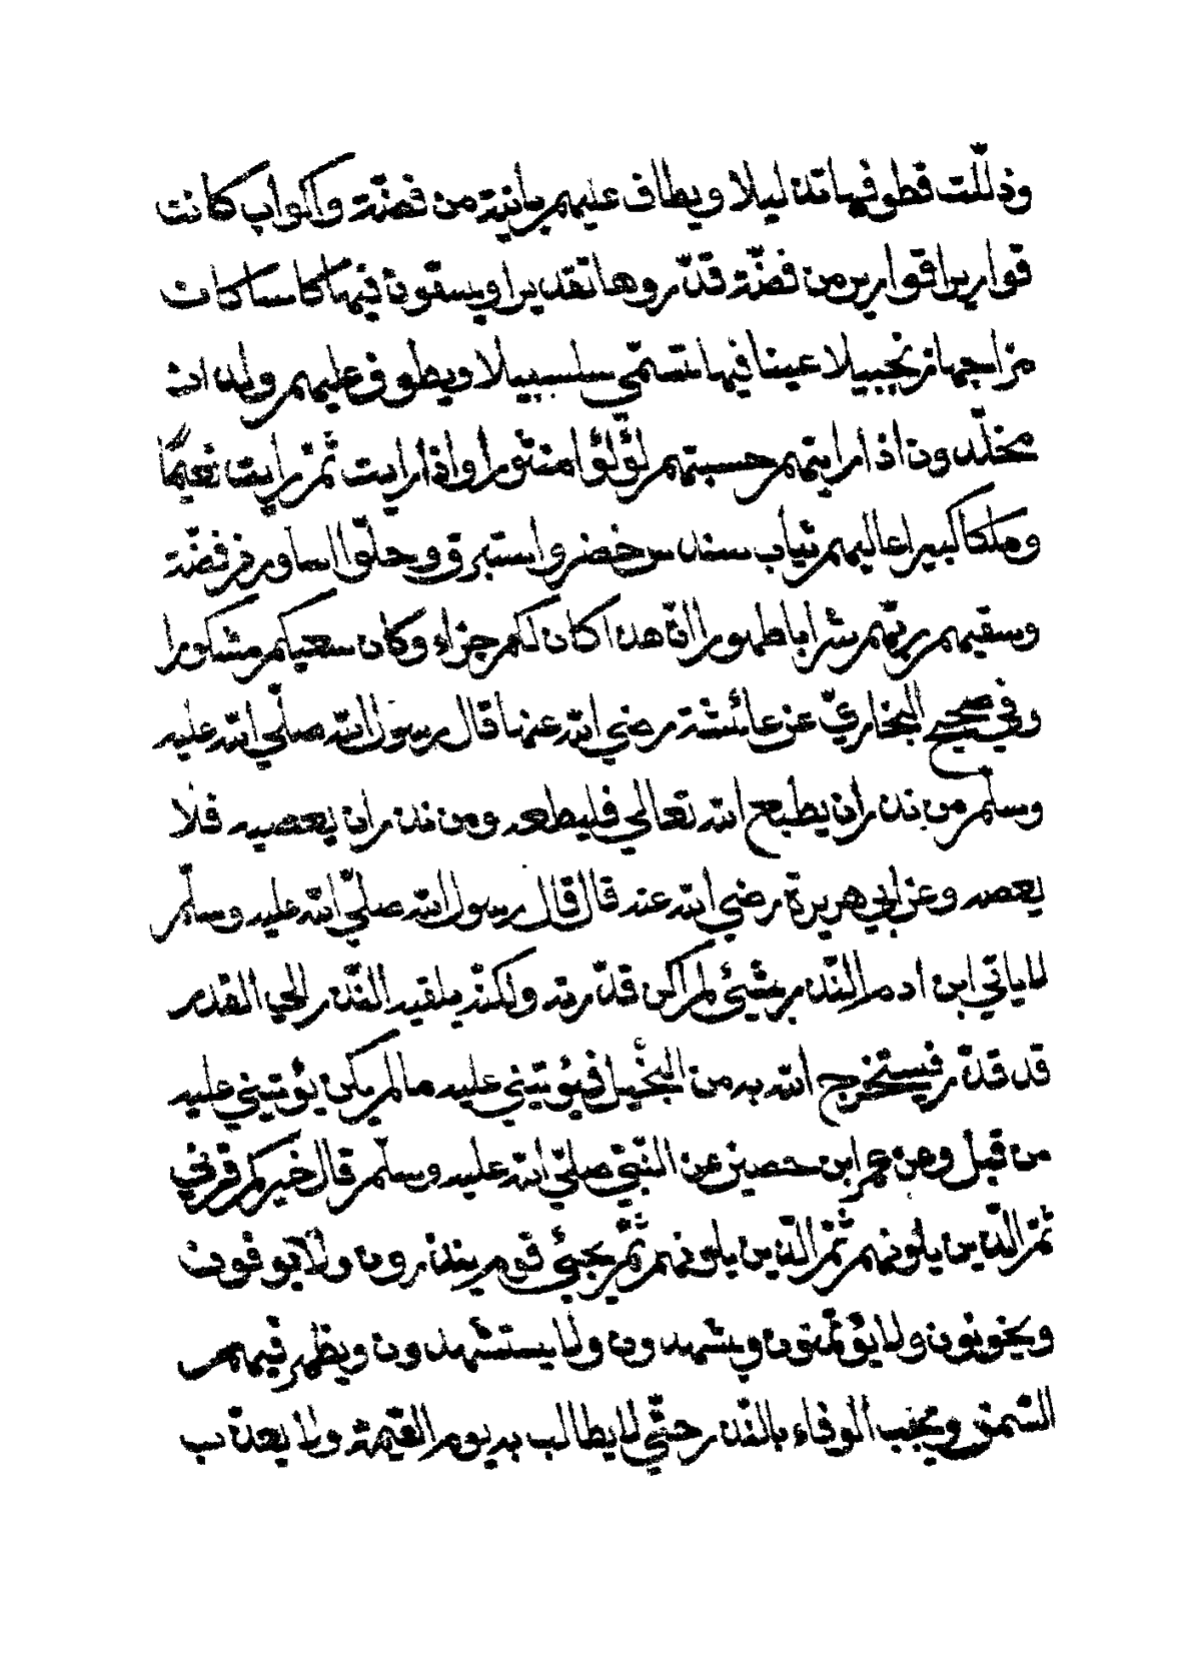 وذلّلت قطوفها تذليلا ويطاف عليهم بانية من فضّة واكواب كانت
قواريرا قوارير من فضّة قدّروها تقديرا ويسقون فيها كاسا كان
مزاجها زنجبيلا عينا فيها تسمّي سلسبيلا ويطوف عليهم ولدان
مخلّدون اذا رايتهم حسبتهم لؤلؤا منثورا واذا رايت ثمّ رايت نعيما
وملكا كبيرا عاليهم ثياب سندس خضر واستبرق وحلّوا اساور من فضّة
وسقيهم ربّهم شرابا طهورا انّ هذا كان لكم جزاء وكان سعيكم مشكورا
وفي صحيح البخاريّ عن عائشة رضي الله عنها قال رسول الله صلّي الله عليه
وسلّم من نذر ان يطيع الله تعالي فليطعه ومن نذر ان يعصيه فلا
يعصه وعن ابي هريرة رضي الله عنه قال قال رسول الله صلّي الله عليه وسلّم
لا ياتي ابن ادم النّذر بشيئ لم اكن قدّرته ولكنه يلقيه النّذر الي القدر
قد قدّر فيستخرج الله به من البخيل فيؤتيني عليه ما لم يكن يؤتيني عليه
من قبل وعن عمر ابن حصين عن النّبيّ صلّي الله عليه وسلّم قال خيركم قرني
ثمّ الّذين يلونهم ثمّ الّذين يلونهم ثمّ يجيئ قوم ينذرون ولا يوفون
ويخونون ولا يؤتمنون ويشهدون ولا يستشهدون ويظهر فيهم
السّمن ويجب الوفاء بالنّذر حتّي لا يطالب به يوم القيمة ولا يعذّب